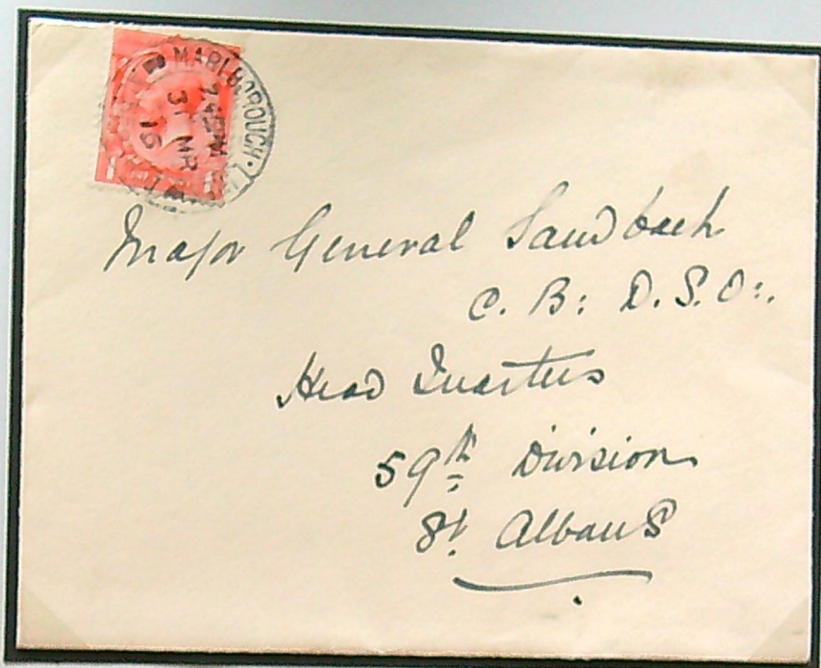 MARLBOROUGH
2.45PM
31 MR
16
Major General Sandbach
C. B: D. S. O:.
Head Quarters
59th Division
St. Albans